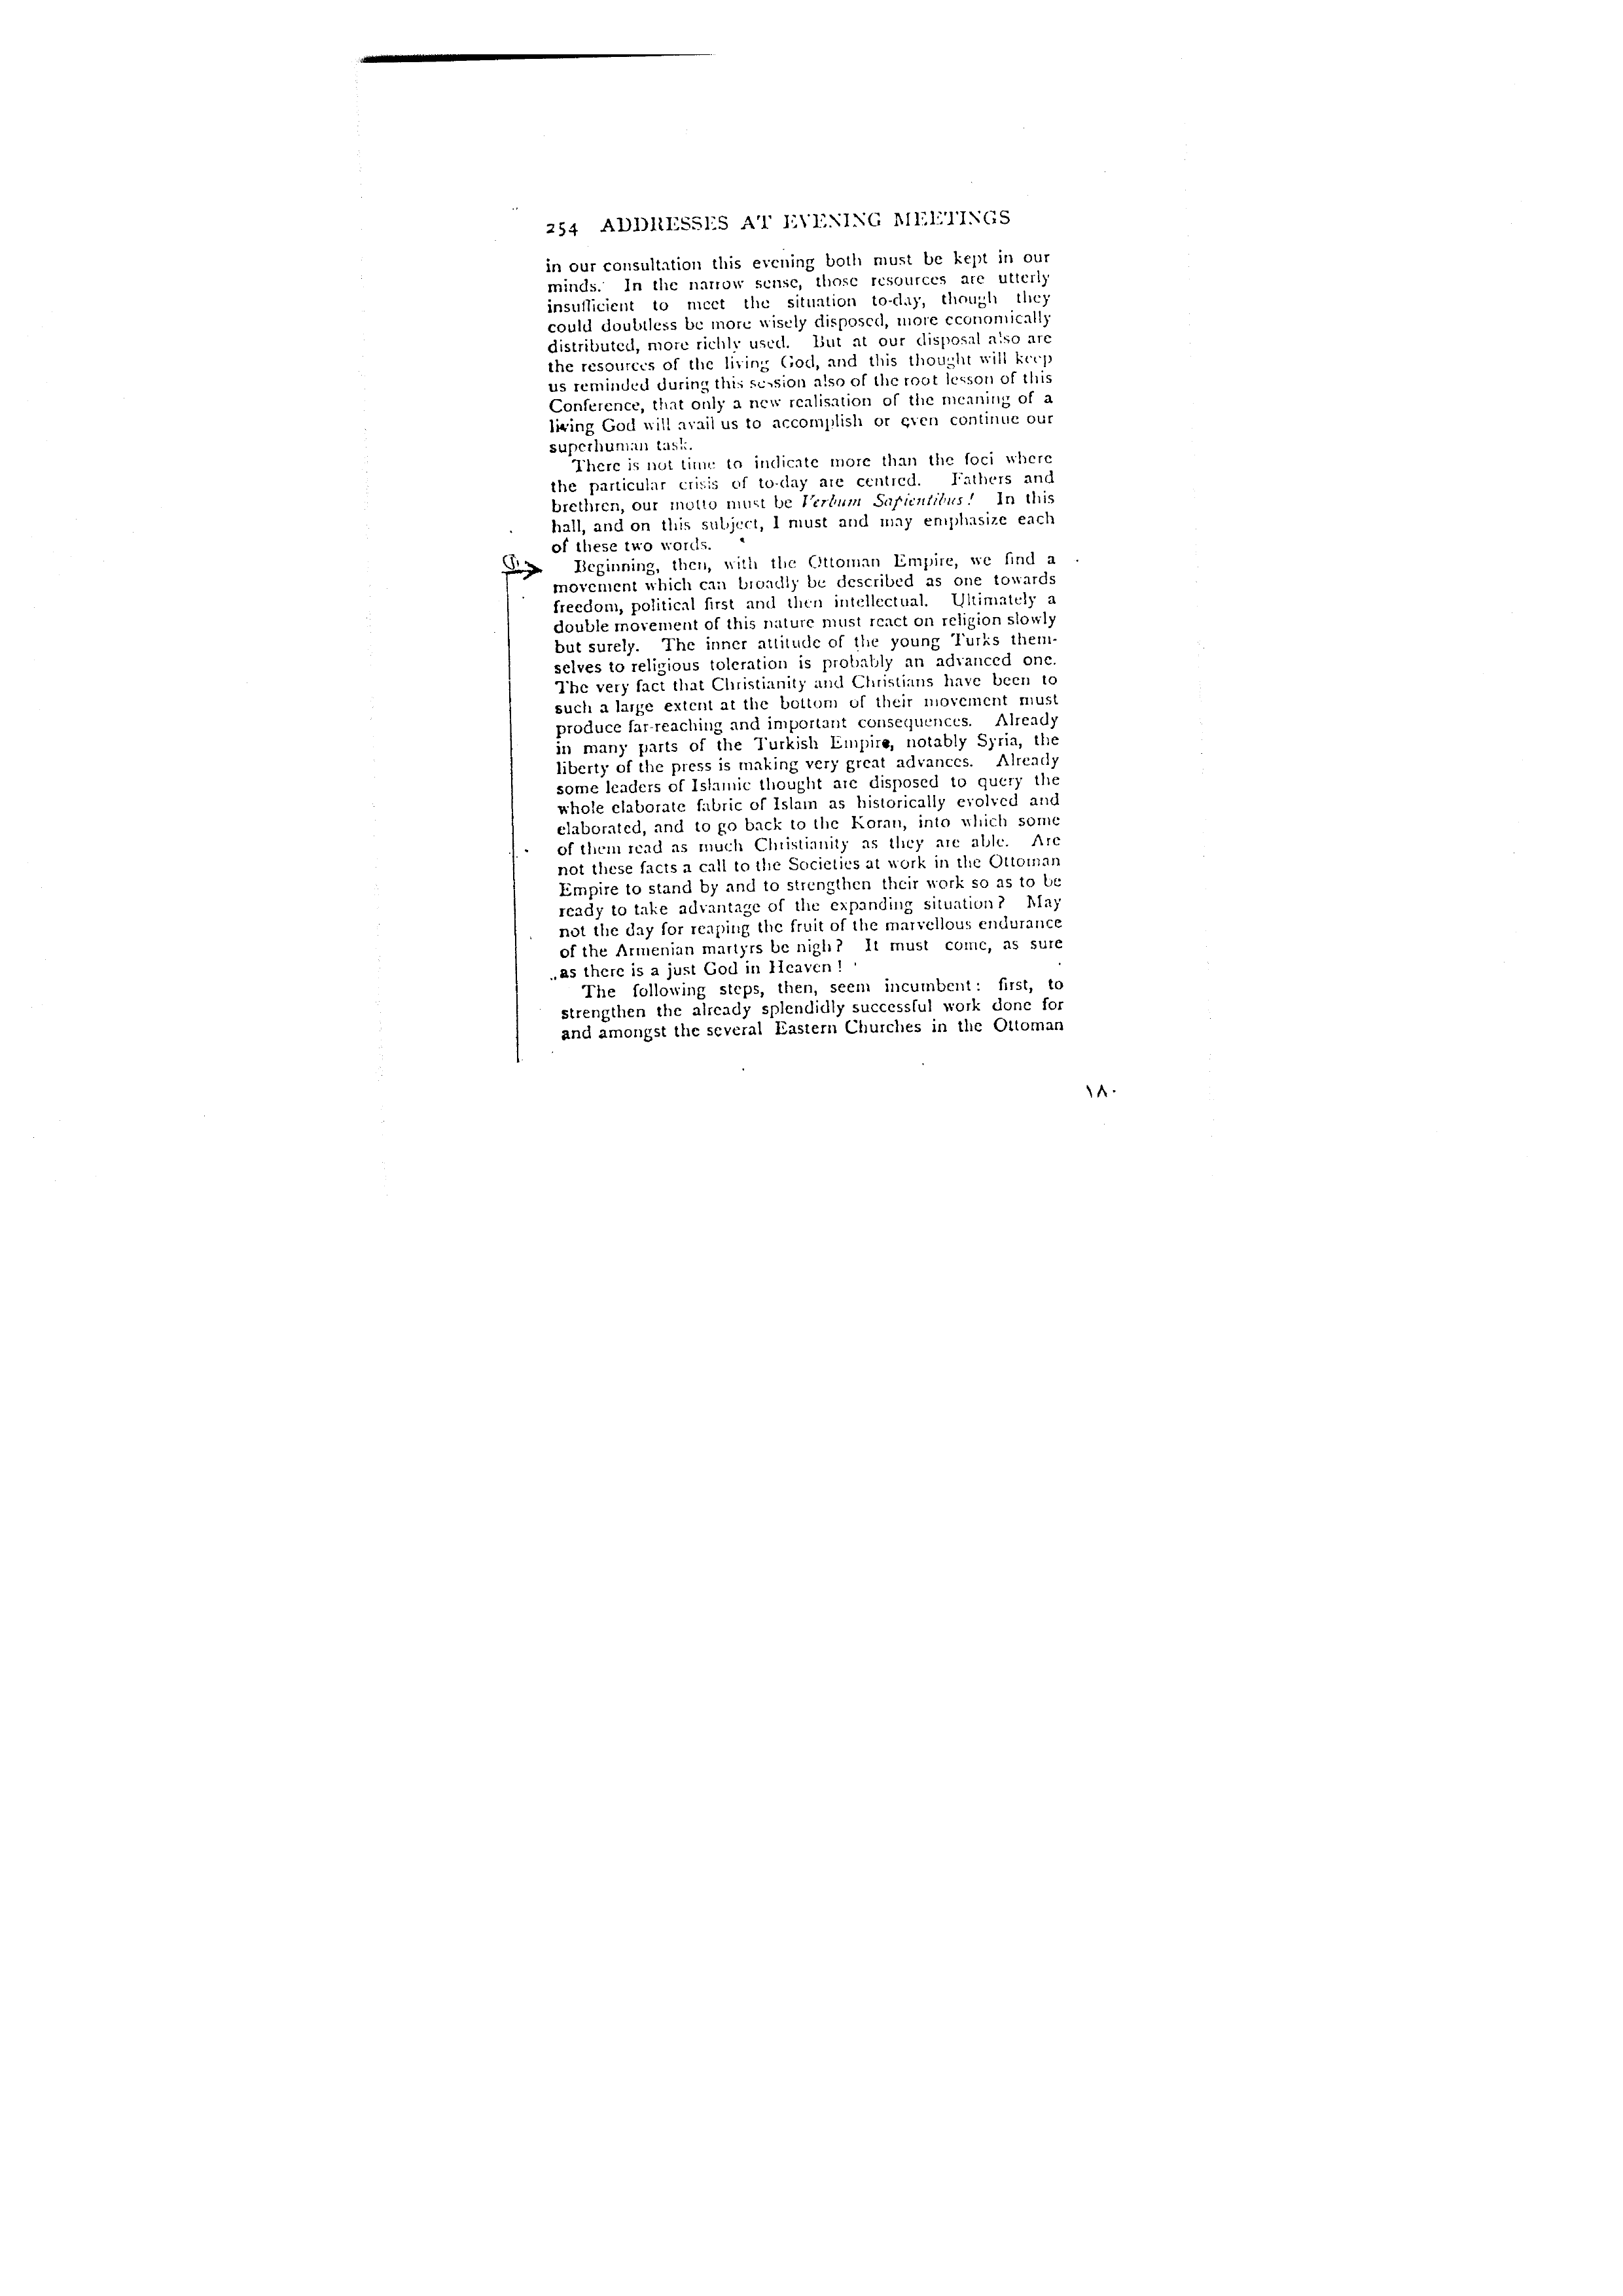 254 ADDRESSES AT EVENING MEETINGS
in our consultation this evening both must be kept in our
minds. In the narrow sense, those resources are utterly
insufficient to meet the situation to-day, though they
could doubtless be more wisely disposed, more economically
distributed, more richly used. But at our disposal also are
the resources of the living God, and this thought will keep
us reminded during this session also of the root lesson of this
Conference, that only a new realisation of the meaning of a
living God will avail us to accomplish or even continue our
superhuman task.
There is not time to indicate more than the foci where
the particular crisis of to-day are centred. Fathers and
brethren, our motto must be Verbum Sapientibus! In this
hall, and on this subject, I must and may emphasize each
of these two words.
Beginning, then, with the Ottoman Empire, we find a
movement which can broadly be described as one towards
freedom, political first and then intellectual. Ultimately a
double movement of this nature must react on religion slowly
but surely. The inner attitude of the young Turks them-
selves to religious toleration is probably an advanced one.
The very fact that Christianity and Christians have been to
such a large extent at the bottom of their movement must
produce far-reaching and important consequences. Already
in many parts of the Turkish Empire, notably Syria, the
liberty of the press is making very great advances. Already
some leaders of Islamic thought are disposed to query the
whole elaborate fabric of Islam as historically evolved and
elaborated, and to go back to the Koran, into which some
of them read as much Christianity as they are able. Are
not these facts a call to the Societies at work in the Ottoman
Empire to stand by and to strengthen their work so as to be
ready to take advantage of the expanding situation? May
not the day for reaping the fruit of the marvellous endurance
of the Armenian martyrs be nigh? It must come, as sure
as there is a just God in Heaven!
The following steps, then, seem incumbent: first, to
strengthen the already splendidly successful work done for
and amongst the several Eastern Churches in the Ottoman
١٨٠